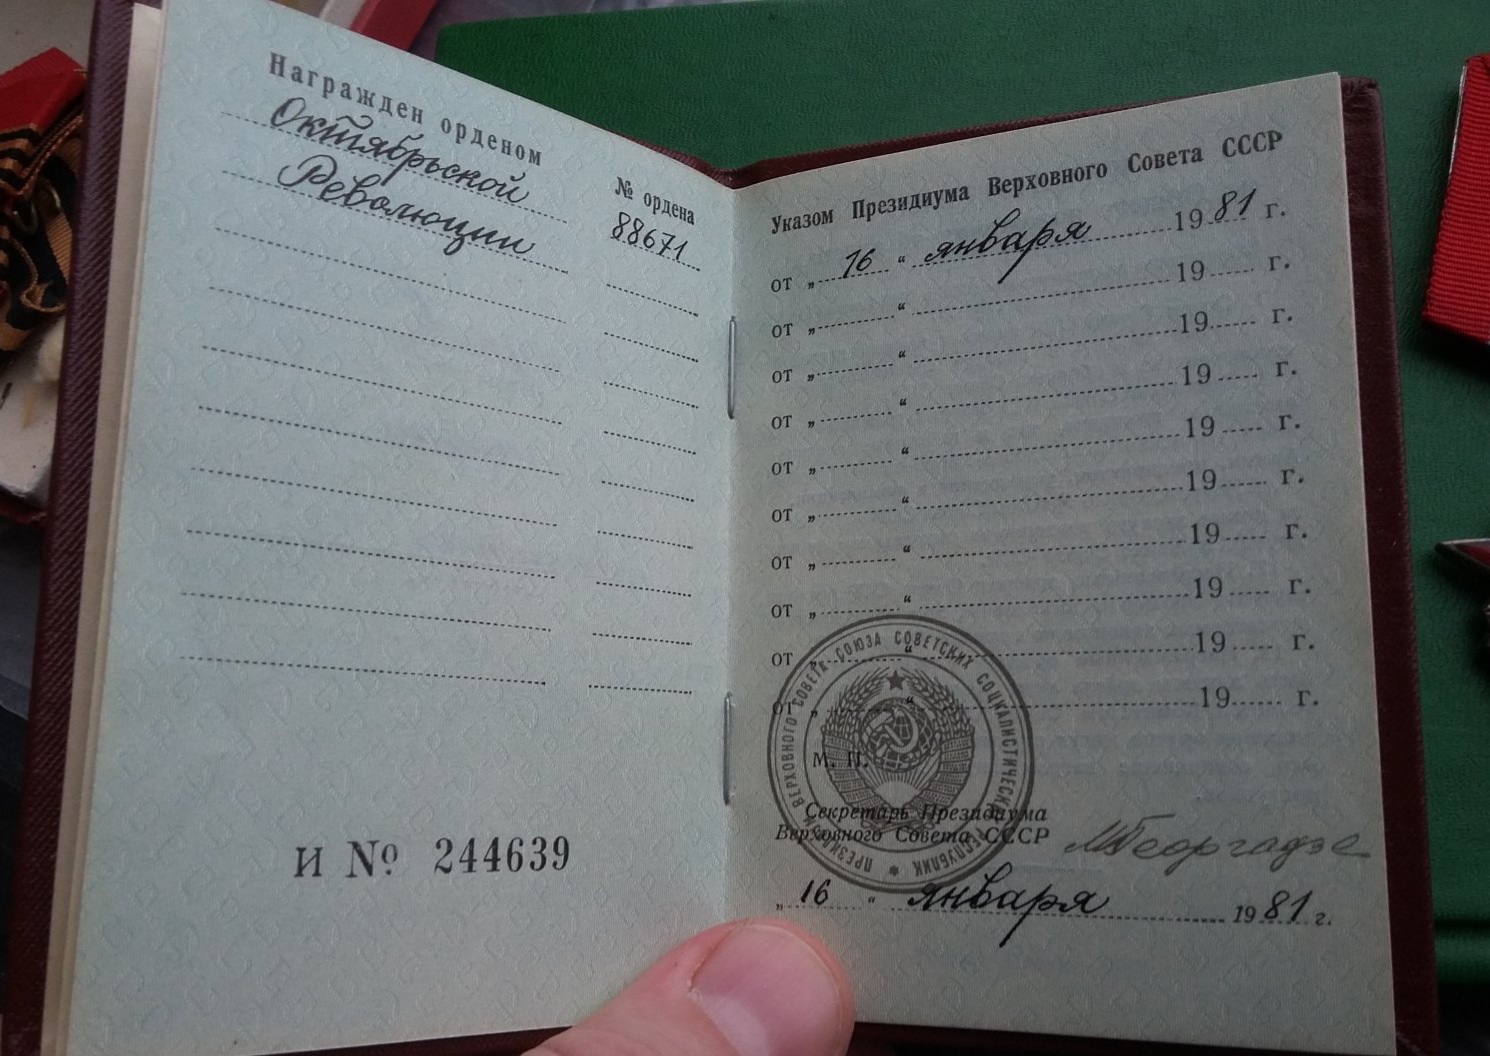 Награжден орденом
Октябрьской
Революции
№ ордена
88671
И № 244639
Указом Президиума Верховного Совета СССР
от „ 16 “ января 19 81 г.
от „ “ 19 г.
от „ “ 19 г.
от „ “ 19 г.
от „ “ 19 г.
от „ “ 19 г.
от „ “ 19 г.
от „ “ 19 г.
от „ “ 19 г.
от „ “ 19 г.
М. П.
ПРЕЗИДИУМ ВЕРХОВНОГО СОВЕТА СОЮЗА СОВЕТСКИХ СОЦИАЛИСТИЧЕСКИХ РЕСПУБЛИК
Секретарь Президиума
Верховного Совета СССР
МГеоргадзе
„ 16 “ января 19 81 г.